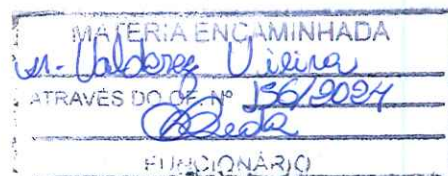 MATÉRIA ENCAMINHADA
Sr. Valderez Vieira
ATRAVÉS DO OF. Nº 156/2024
FUNCIONÁRIO